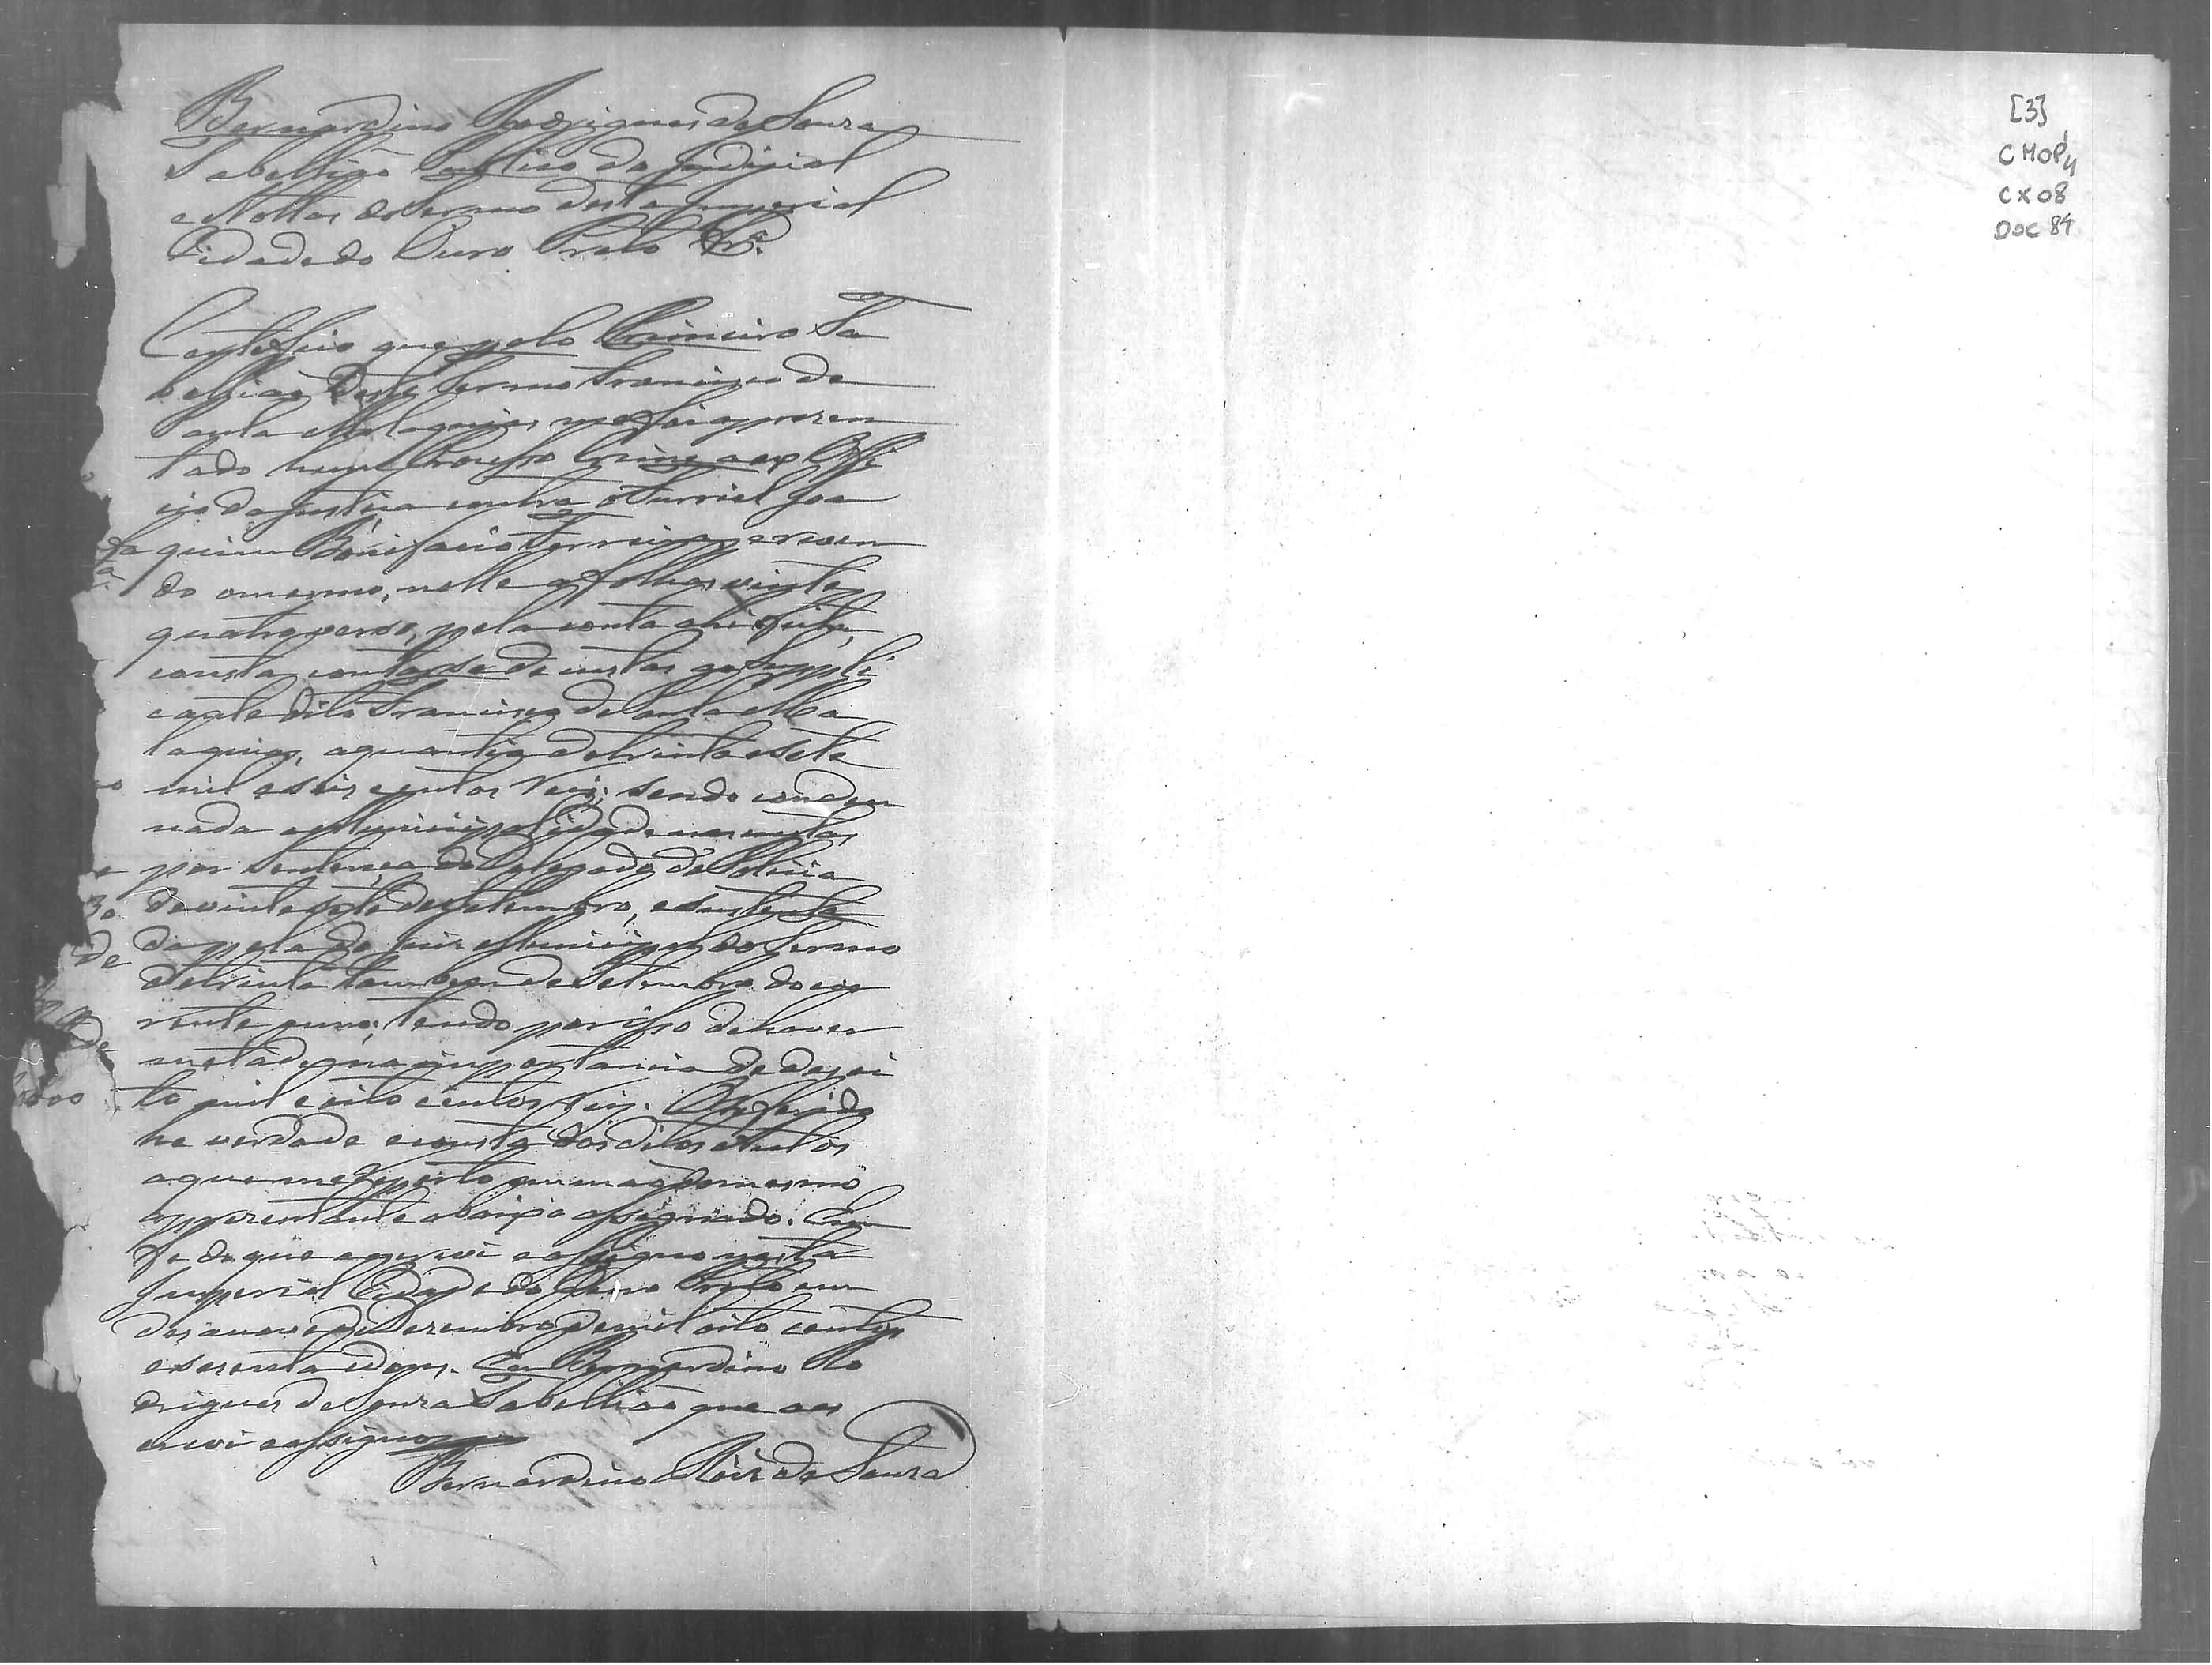 Bernardino Rodrigues de Souza
Tabellião Publico do Judicial
e Nottas do Termo desta Imperial
Cidade do Ouro Preto &.ª
Certefico que pelo Primeiro Ta
bellião deste Termo Francisco de
Paula Malaquias me foi apresen
tado hum Processo Crime a ex Offi
cio da Justiça contra o Furriel Joa
quim Bonifacio Ferreira, e reven
do o mesmo, nelle a folhas vinte e
quatro verso, pela conta ahi feita,
consta contarse de custas ao Suppli
cante dito Francisco de Paula Ma
laquias, a quantia de trinta e sete
mil e seis centos reis; sendo condem
nada a Municipalidade nas custas
por Sentença do Delegado de Policia
de vinte e sete de Setembro, e sustenta
da pela do Juiz Municipal do Termo
de trinta tambem de Setembro do cor
rente anno; tendo por isso de haver
metade na importancia de dezoi
to mil e oito centos reis. O referido
he verdade e consta dos ditos Autos
a que me reporto em mão do mesmo
appresentante abaixo assignado. Em
fe do que a escrevi e assigno nesta
Imperial Cidade do Ouro Preto em
desanove de Dezembro de mil oito centos
e sesenta e dous. Eu Bernardino Ro
drigues de Souza Tabellião que a es
crevi e assigno
Bernardino Roiz de Souza
[3]
CMOP
CX 08
DOC 84